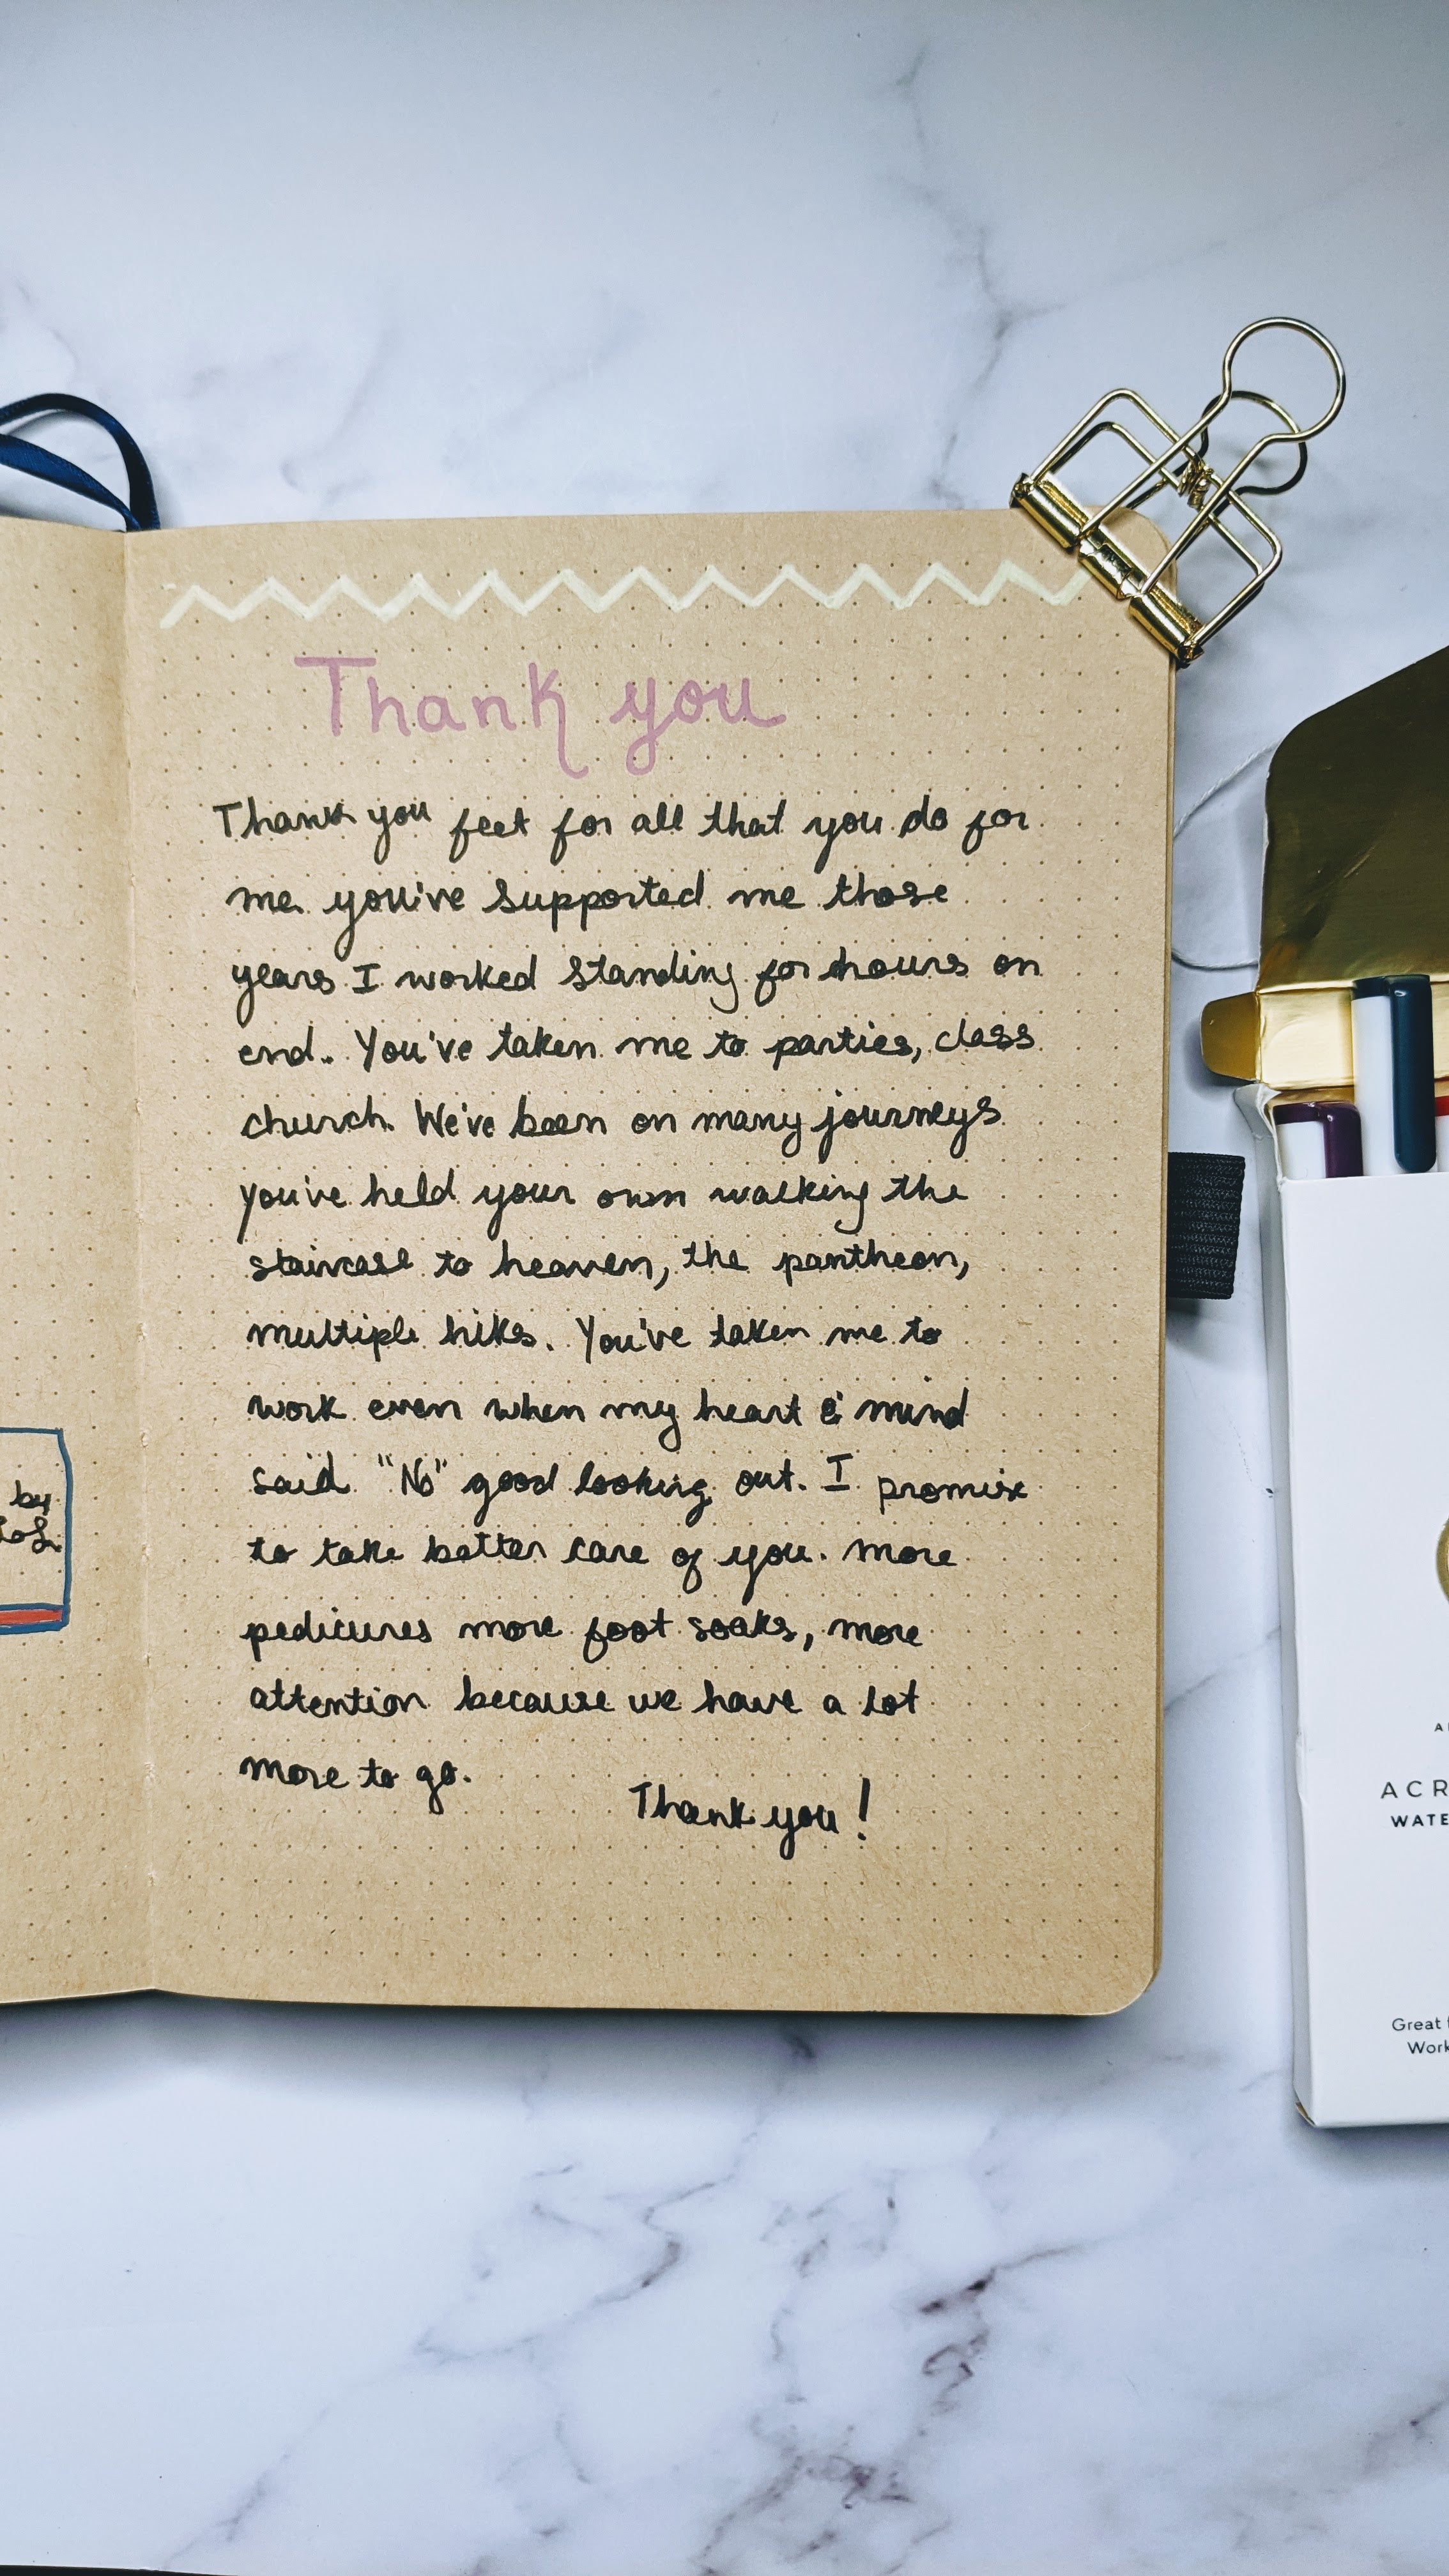 Thank you
Thank you feet for all that you do for
me you've supported me those
years I worked standing for hours on
end.. You've taken me to parties, class
church. We've been on many journeys
you've held your own walking the
staircase to heaven, the pantheon,
multiple hikes. You've taken me to
work even when my heart & mind
said "No" good looking out. I promise
to take better care of you. more
pedicures more foot soaks, more
attention because we have a lot
more to go.
Thank you!
by
ACR
WATE
Great
Work